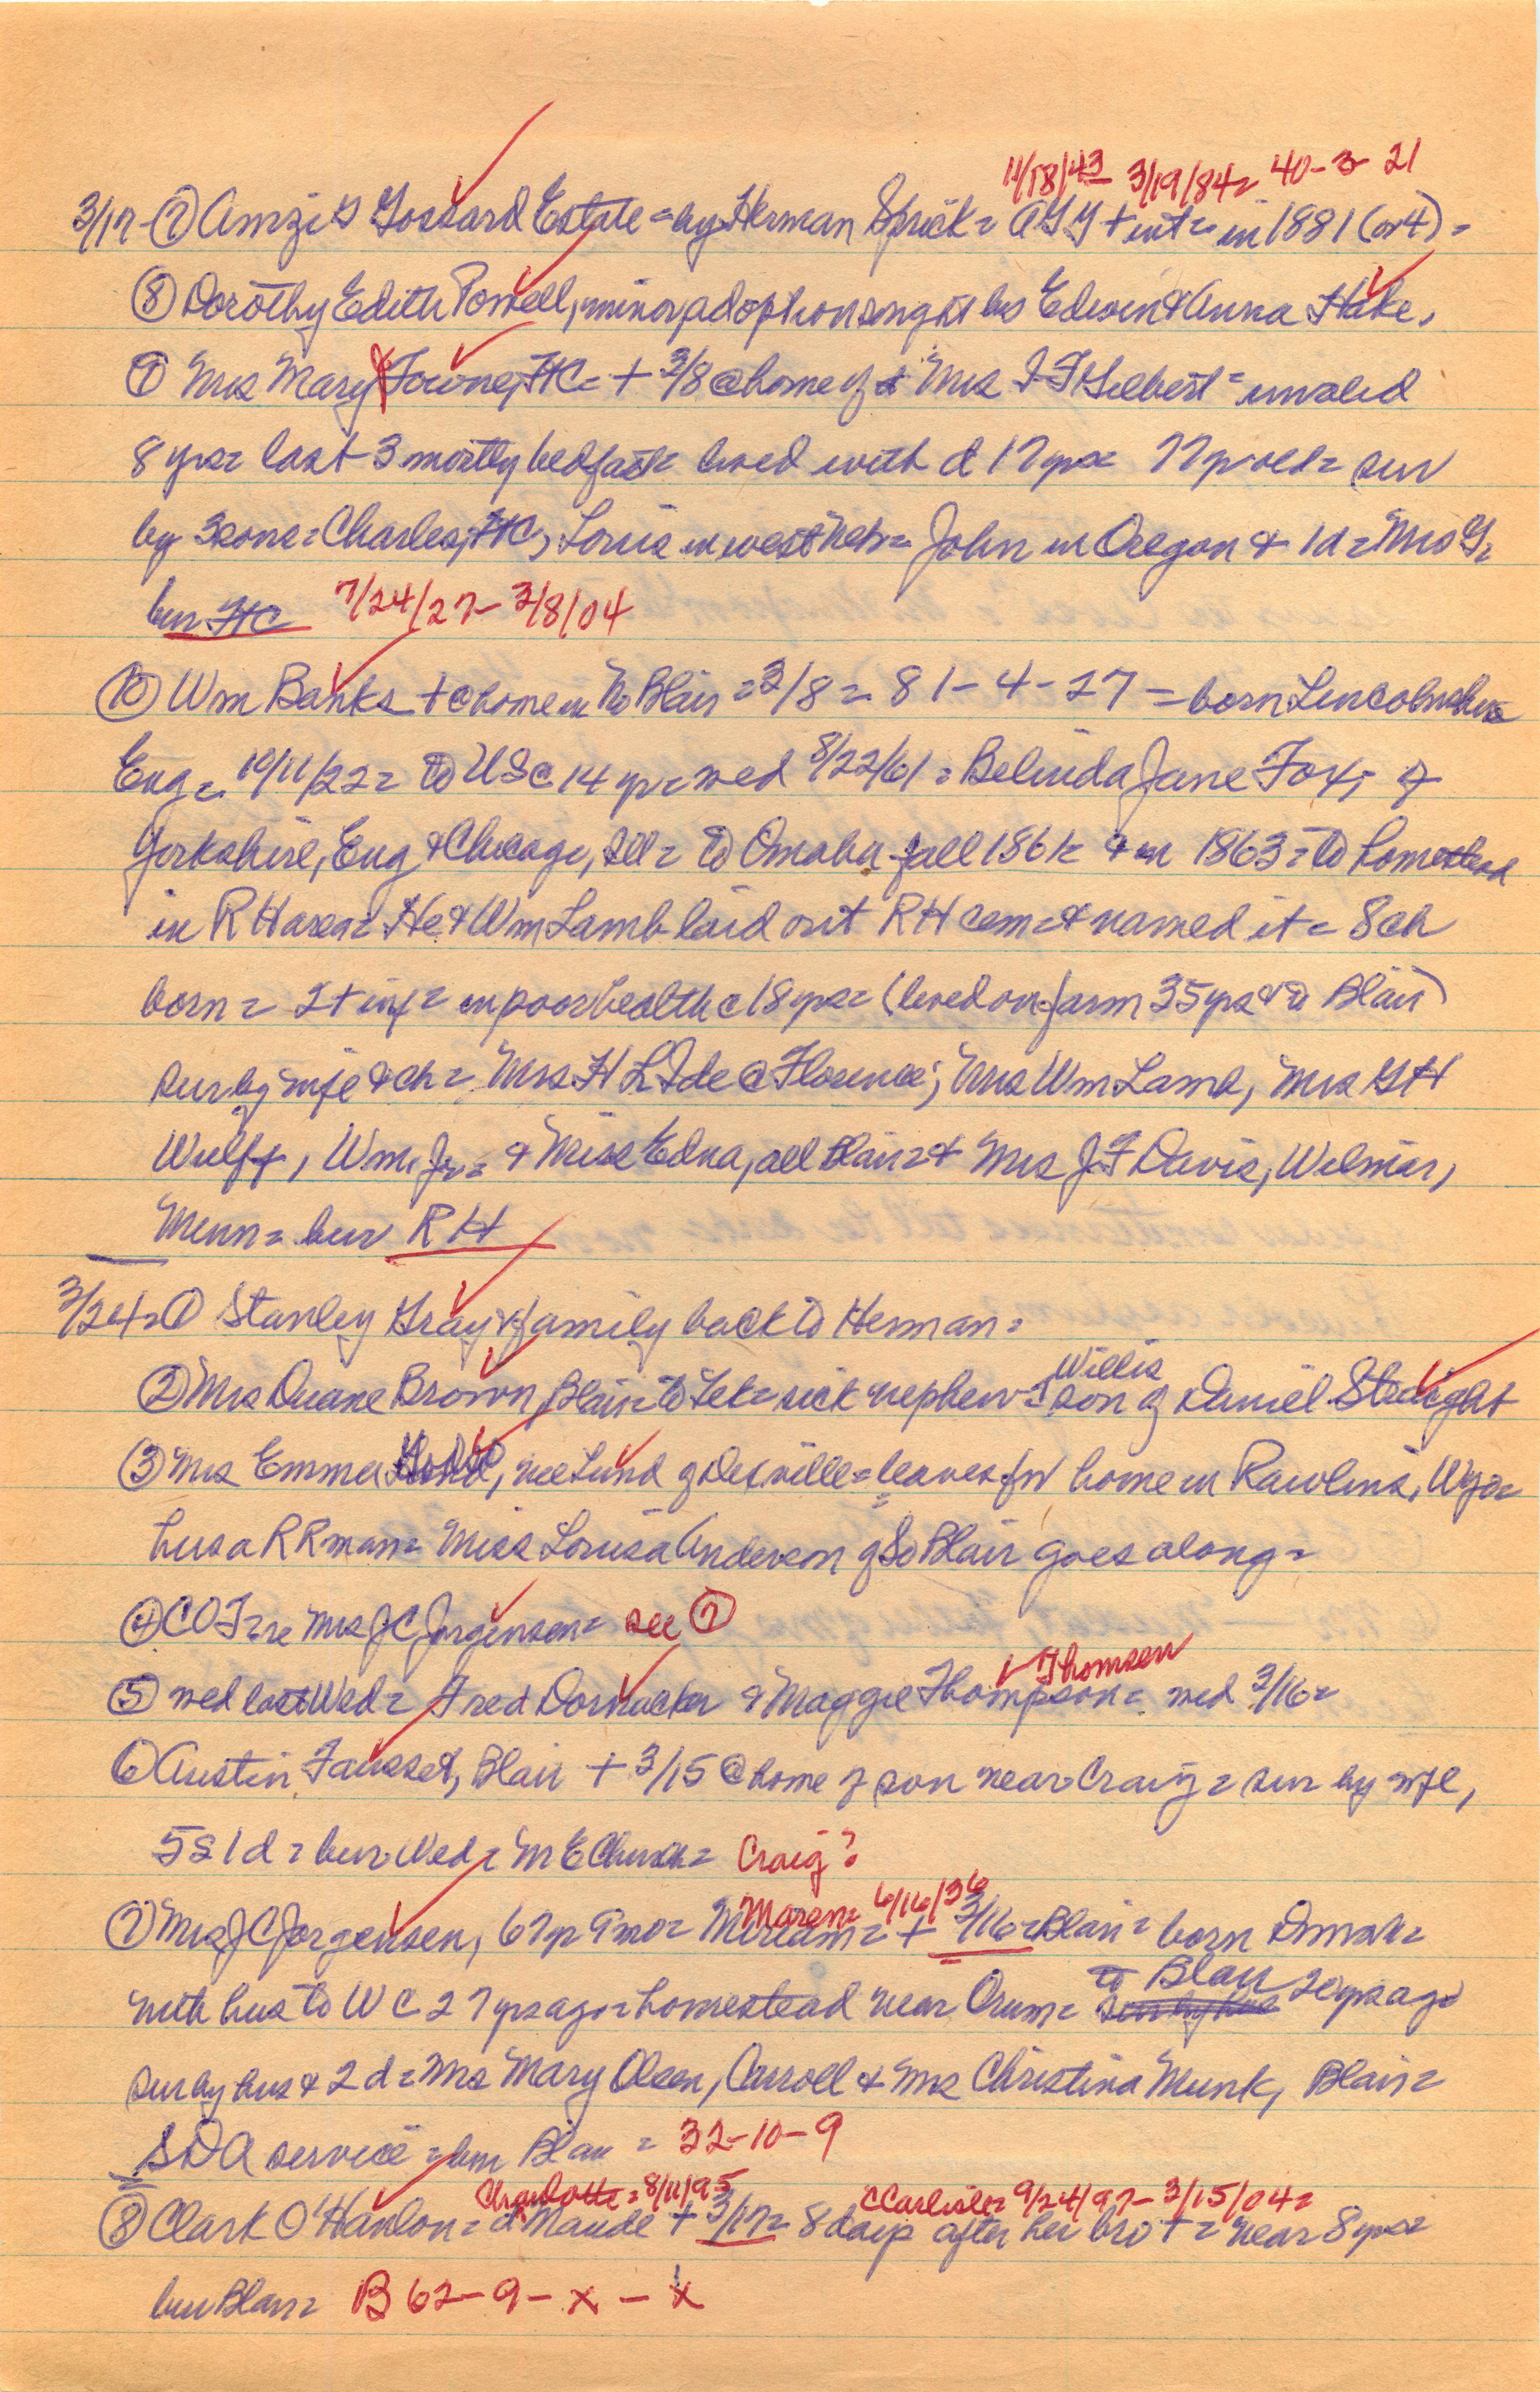 11/18/43 – 3/19/84 = 40-3-21
3/17 - ⑦ Amzi G Gossard Estate = by Herman Sprick = AGG + int = in 1881 (or 4) =
⑧ Dorothy Edith Powell, minor, adoption sought by Edwin & Anna Hake.
⑨ Mrs Mary Towne, FtC = + 3/8 @ home of d Mrs F Gilbert = invalid
8 yrs = last 3 mostly bedfast = lived with d 17 yrs = 77 yr old = sur
by 3 sons = Charles, FtC, Louis in west Neb = John in Oregon & 1 d = Mrs G =
bur FtC 7/24/27 – 3/8/04
⑩ Wm Banks + @ home in No Blair = 3/8 = 81 - 4 - 27 = born Lincolnshire
Eng = 10/11/22 = to US @ 14 yr = wed 8/22/61 = Belinda Jane Fox, of
Yorkshire, Eng & Chicago, Ill = to Omaha fall 1861 = & in 1863 = to homestead
in RH area = He & Wm Lamb laid out RH cem = & named it = 8 ch
born = 2 + inf = in poor health c 18 yrs = (lived on farm 35 yrs & to Blair)
sur by wife & ch = Mrs H L Ide @ Florence; Mrs Wm Lamb, Mrs G H
Wulff, Wm Jr = & Miss Edna, all Blair = & Mrs J F Davis, Wilmar,
Minn = bur RH
3/24 = ① Stanley Gray & family back to Herman =
② Mrs Duane Brown, Blair = to Tek = sick nephew = Willis son of Daniel Streight
③ Mrs Emma, nee Lund of DeSville = leaves for home in Rawlins, Wyo =
hus a RR man = Miss Louisa Anderson of So Blair goes along =
④ COT = re Mrs J C Jorgensen = see ⑦
⑤ wed last Wed = Fred Dornacker & Maggie Thompson = wed 3/16 = Thomsen
⑥ Austin Fausset, Blair + 3/15 @ home of son near Craig = sur by wife,
5 s 1 d = bur Wed = M E Church = Craig?
⑦ Mrs J C Jorgensen, 67 yr 9 mo = Miriam = Maren = 6/16/36 + 3/16 = Blair = born Dnmrk =
with hus to WC 27 yrs ago = homestead near Orum = sur by hus to Blair 20 yrs ago
sur by hus & 2 d = Mrs Mary Olsen, Carroll & Mrs Christina Munk, Blair =
SDA service = bur Blair = 32-10-9
Charlotte = 8/11/95 CCarlisle = 9/24/97 – 3/15/04 =
⑧ Clark O'Hanlon = d Maude + 3/17 = 8 days after her bro + = near 8 yrs =
bur Blair = B 62 - 9 - x - x